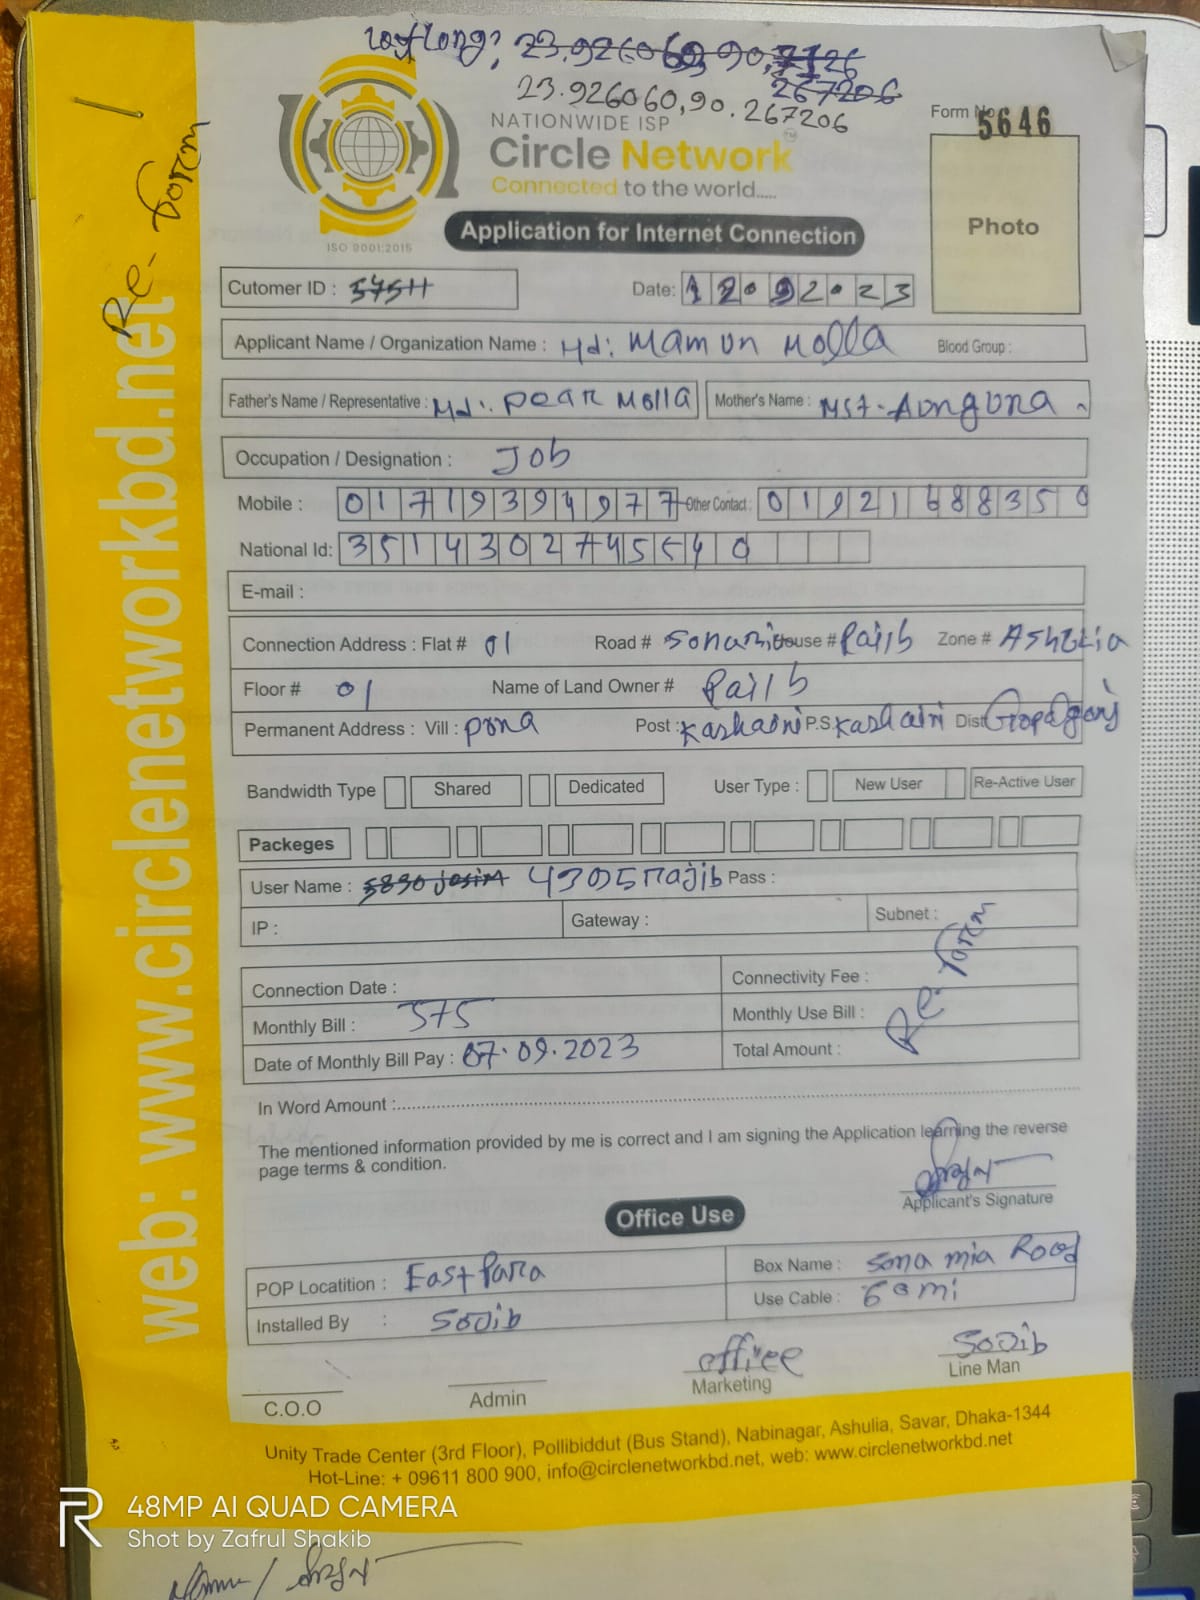 23.926060,90.267206
NATIONWIDE ISP
Form No 5646
Circle Network
Connected to the world.....
ISO 9001:2015
Application for Internet Connection
Photo
Re- ফরম
Cutomer ID :
Date: 12 09 2023
Applicant Name / Organization Name : Md: Mamun Molla Blood Group :
Father's Name / Representative : Md: Dear Molla Mother's Name : Mst. Aongura
Occupation / Designation : Job
Mobile : 01719394977 Other Contact : 01921688350
National Id: 3514302745540
E-mail :
Connection Address : Flat # 01 Road # House # Zone # Ashulia
Floor # 01 Name of Land Owner #
Permanent Address : Vill : pona Post : Kashaini P.S Kashaini Dist Gopalganj
Bandwidth Type Shared Dedicated User Type : New User Re-Active User
Packeges
User Name : 4305rajib Pass :
IP : Gateway : Subnet :
Re- ফরম
Connection Date : Connectivity Fee :
Monthly Bill : 575 Monthly Use Bill :
Date of Monthly Bill Pay : 07.09.2023 Total Amount :
In Word Amount :
The mentioned information provided by me is correct and I am signing the Application learning the reverse
page terms & condition.
Applicant's Signature
Office Use
POP Locatition : East Para Box Name : Sona mia Road
Installed By : Sojib Use Cable : 60mi
office Sojib
C.O.O Admin Marketing Line Man
Unity Trade Center (3rd Floor), Pollibiddut (Bus Stand), Nabinagar, Ashulia, Savar, Dhaka-1344
Hot-Line: + 09611 800 900, info@circlenetworkbd.net, web: www.circlenetworkbd.net
web: www.circlenetworkbd.net
48MP AI QUAD CAMERA
Shot by Zafrul Shakib